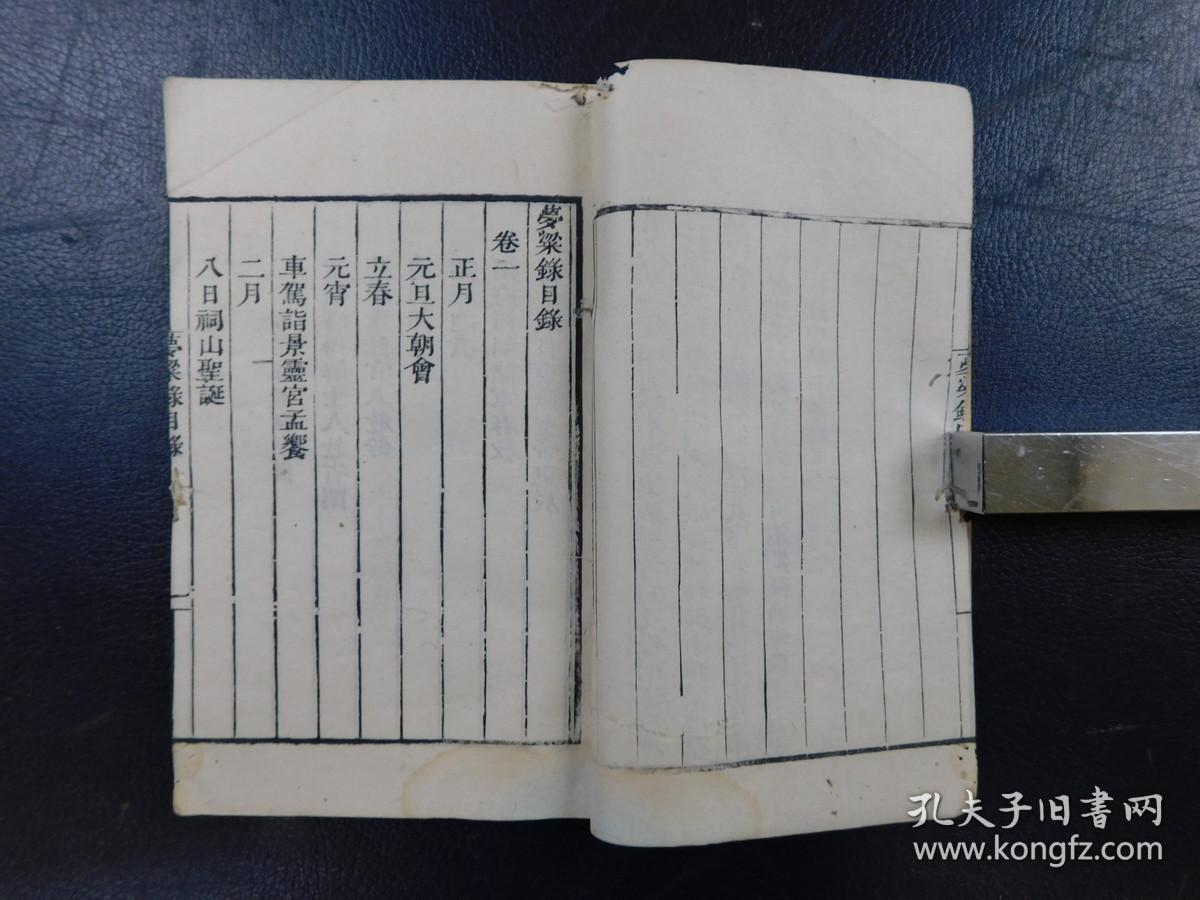 夢粱錄目錄
卷一
正月
元旦大朝會
立春
元宵
車駕詣景靈宮孟饗
二月
八日祠山聖誕
夢粱錄目錄
孔夫子旧書网
www.kongfz.com